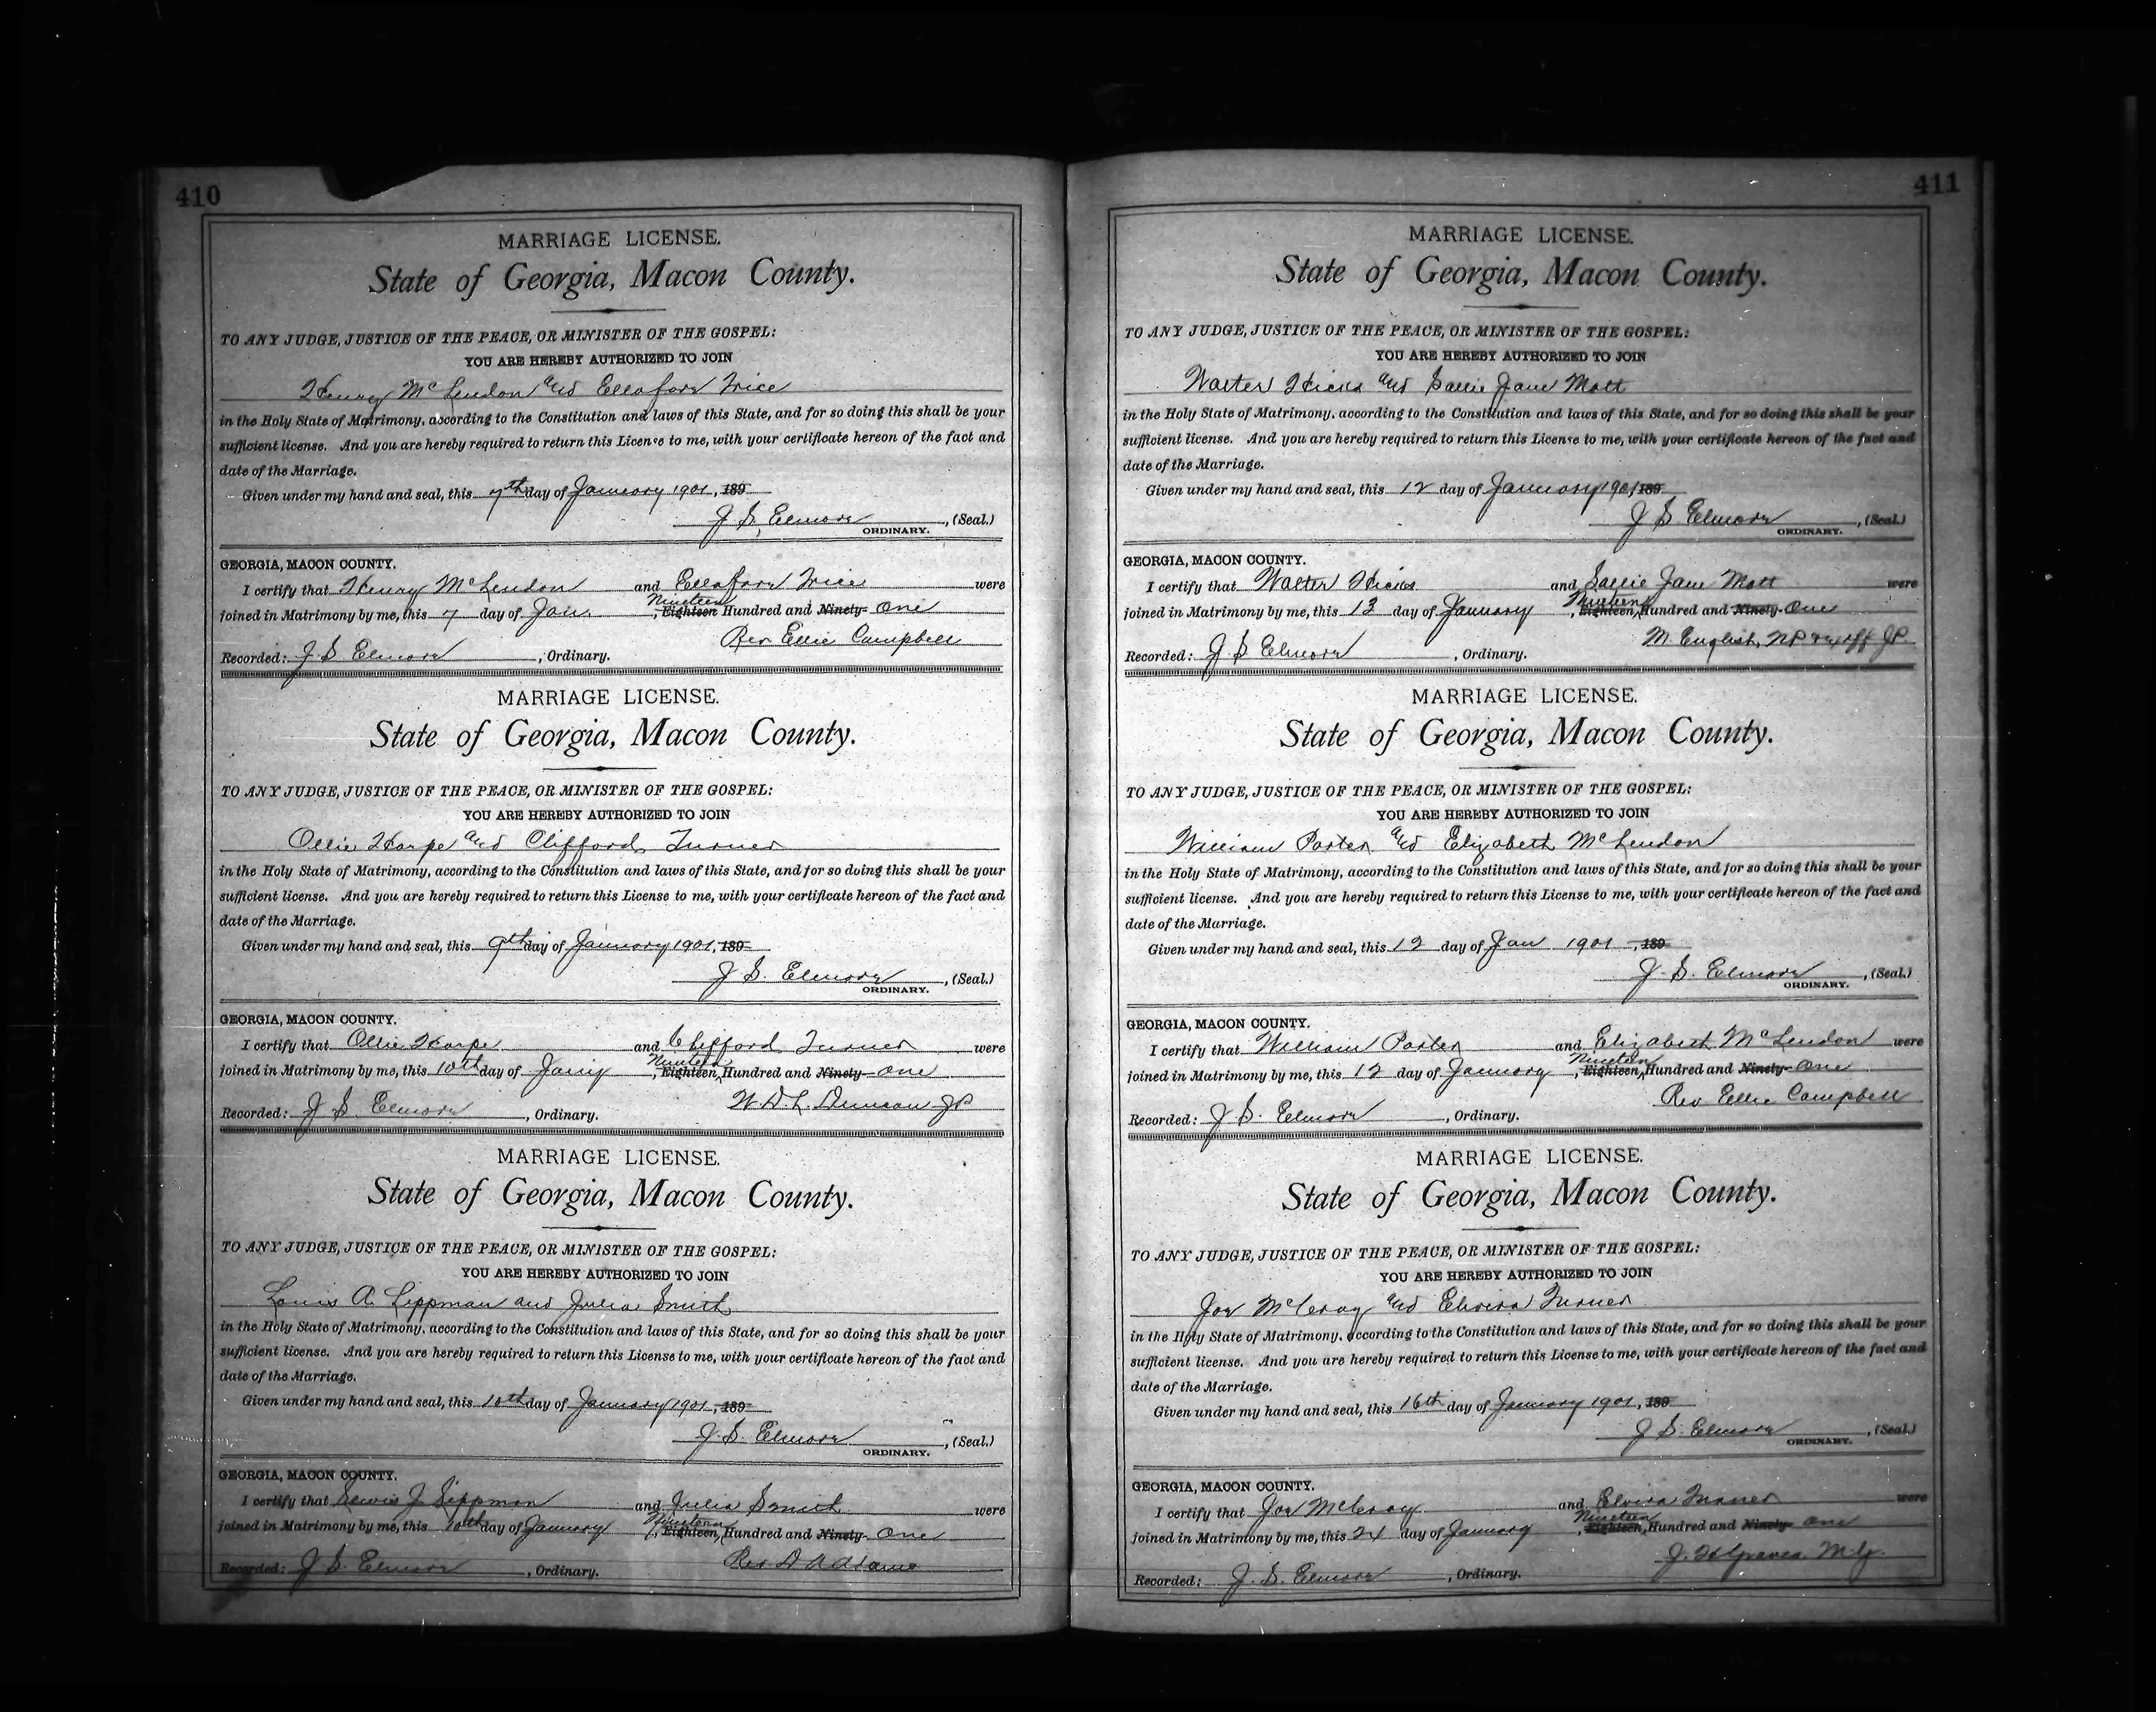 410
MARRIAGE LICENSE.
State of Georgia, Macon County.
TO ANY JUDGE, JUSTICE OF THE PEACE, OR MINISTER OF THE GOSPEL:
YOU ARE HEREBY AUTHORIZED TO JOIN
Henry McLendon and Ellafair Trice
in the Holy State of Matrimony, according to the Constitution and laws of this State, and for so doing this shall be your
sufficient license. And you are hereby required to return this License to me, with your certificate hereon of the fact and
date of the Marriage.
Given under my hand and seal, this 7th day of January 1901, 189
J. S. Elmore, (Seal.)
ORDINARY.
GEORGIA, MACON COUNTY.
I certify that Henry McLendon and Ellafair Trice were
Nineteen
joined in Matrimony by me, this 7 day of Jan., Eighteen Hundred and Ninety- One
Rev Ellie Campbell
Recorded: J. S. Elmore, Ordinary.
MARRIAGE LICENSE.
State of Georgia, Macon County.
TO ANY JUDGE, JUSTICE OF THE PEACE, OR MINISTER OF THE GOSPEL:
YOU ARE HEREBY AUTHORIZED TO JOIN
Ollie Harpe and Clifford Turner
in the Holy State of Matrimony, according to the Constitution and laws of this State, and for so doing this shall be your
sufficient license. And you are hereby required to return this License to me, with your certificate hereon of the fact and
date of the Marriage.
Given under my hand and seal, this 9th day of January 1901, 189
J. S. Elmore, (Seal.)
ORDINARY.
GEORGIA, MACON COUNTY.
I certify that Ollie Harpe and Clifford Turner were
Nineteen
joined in Matrimony by me, this 10th day of Jany, Eighteen Hundred and Ninety- One
W. D. L. Duncan JP
Recorded: J. S. Elmore, Ordinary.
MARRIAGE LICENSE.
State of Georgia, Macon County.
TO ANY JUDGE, JUSTICE OF THE PEACE, OR MINISTER OF THE GOSPEL:
YOU ARE HEREBY AUTHORIZED TO JOIN
Louis A. Lippman and Julia Smith
in the Holy State of Matrimony, according to the Constitution and laws of this State, and for so doing this shall be your
sufficient license. And you are hereby required to return this License to me, with your certificate hereon of the fact and
date of the Marriage.
Given under my hand and seal, this 10th day of January 1901, 189
J. S. Elmore, (Seal.)
ORDINARY.
GEORGIA, MACON COUNTY.
I certify that Lewis J Lippman and Julia Smith were
Nineteen
joined in Matrimony by me, this 10th day of January, Eighteen Hundred and Ninety- One
Rev D A Adams
Recorded: J. S. Elmore, Ordinary.
411
MARRIAGE LICENSE.
State of Georgia, Macon County.
TO ANY JUDGE, JUSTICE OF THE PEACE, OR MINISTER OF THE GOSPEL:
YOU ARE HEREBY AUTHORIZED TO JOIN
Walter Hicks and Sallie Jane Mott
in the Holy State of Matrimony, according to the Constitution and laws of this State, and for so doing this shall be your
sufficient license. And you are hereby required to return this License to me, with your certificate hereon of the fact and
date of the Marriage.
Given under my hand and seal, this 12 day of January 1901, 189
J S Elmore, (Seal.)
ORDINARY.
GEORGIA, MACON COUNTY.
I certify that Walter Hicks and Sallie Jane Mott were
Nineteen
joined in Matrimony by me, this 13 day of January, Eighteen Hundred and Ninety- One
M. English, NP & ex off JP
Recorded: J. S. Elmore, Ordinary.
MARRIAGE LICENSE.
State of Georgia, Macon County.
TO ANY JUDGE, JUSTICE OF THE PEACE, OR MINISTER OF THE GOSPEL:
YOU ARE HEREBY AUTHORIZED TO JOIN
William Porter and Elizabeth McLendon
in the Holy State of Matrimony, according to the Constitution and laws of this State, and for so doing this shall be your
sufficient license. And you are hereby required to return this License to me, with your certificate hereon of the fact and
date of the Marriage.
Given under my hand and seal, this 12 day of Jan 1901, 189
J. S. Elmore, (Seal.)
ORDINARY.
GEORGIA, MACON COUNTY.
I certify that William Porter and Elizabeth McLendon were
Nineteen
joined in Matrimony by me, this 12 day of January, Eighteen Hundred and Ninety- One
Rev Ellie Campbell
Recorded: J. S. Elmore, Ordinary.
MARRIAGE LICENSE.
State of Georgia, Macon County.
TO ANY JUDGE, JUSTICE OF THE PEACE, OR MINISTER OF THE GOSPEL:
YOU ARE HEREBY AUTHORIZED TO JOIN
Joe McCrary and Elvira Turner
in the Holy State of Matrimony, according to the Constitution and laws of this State, and for so doing this shall be your
sufficient license. And you are hereby required to return this License to me, with your certificate hereon of the fact and
date of the Marriage.
Given under my hand and seal, this 16th day of January 1901, 189
J S. Elmore, (Seal.)
ORDINARY.
GEORGIA, MACON COUNTY.
I certify that Joe McCrary and Elvira Turner were
Nineteen
joined in Matrimony by me, this 24 day of January, Eighteen Hundred and Ninety- One
J. H. Graves M.G.
Recorded: J. S. Elmore, Ordinary.